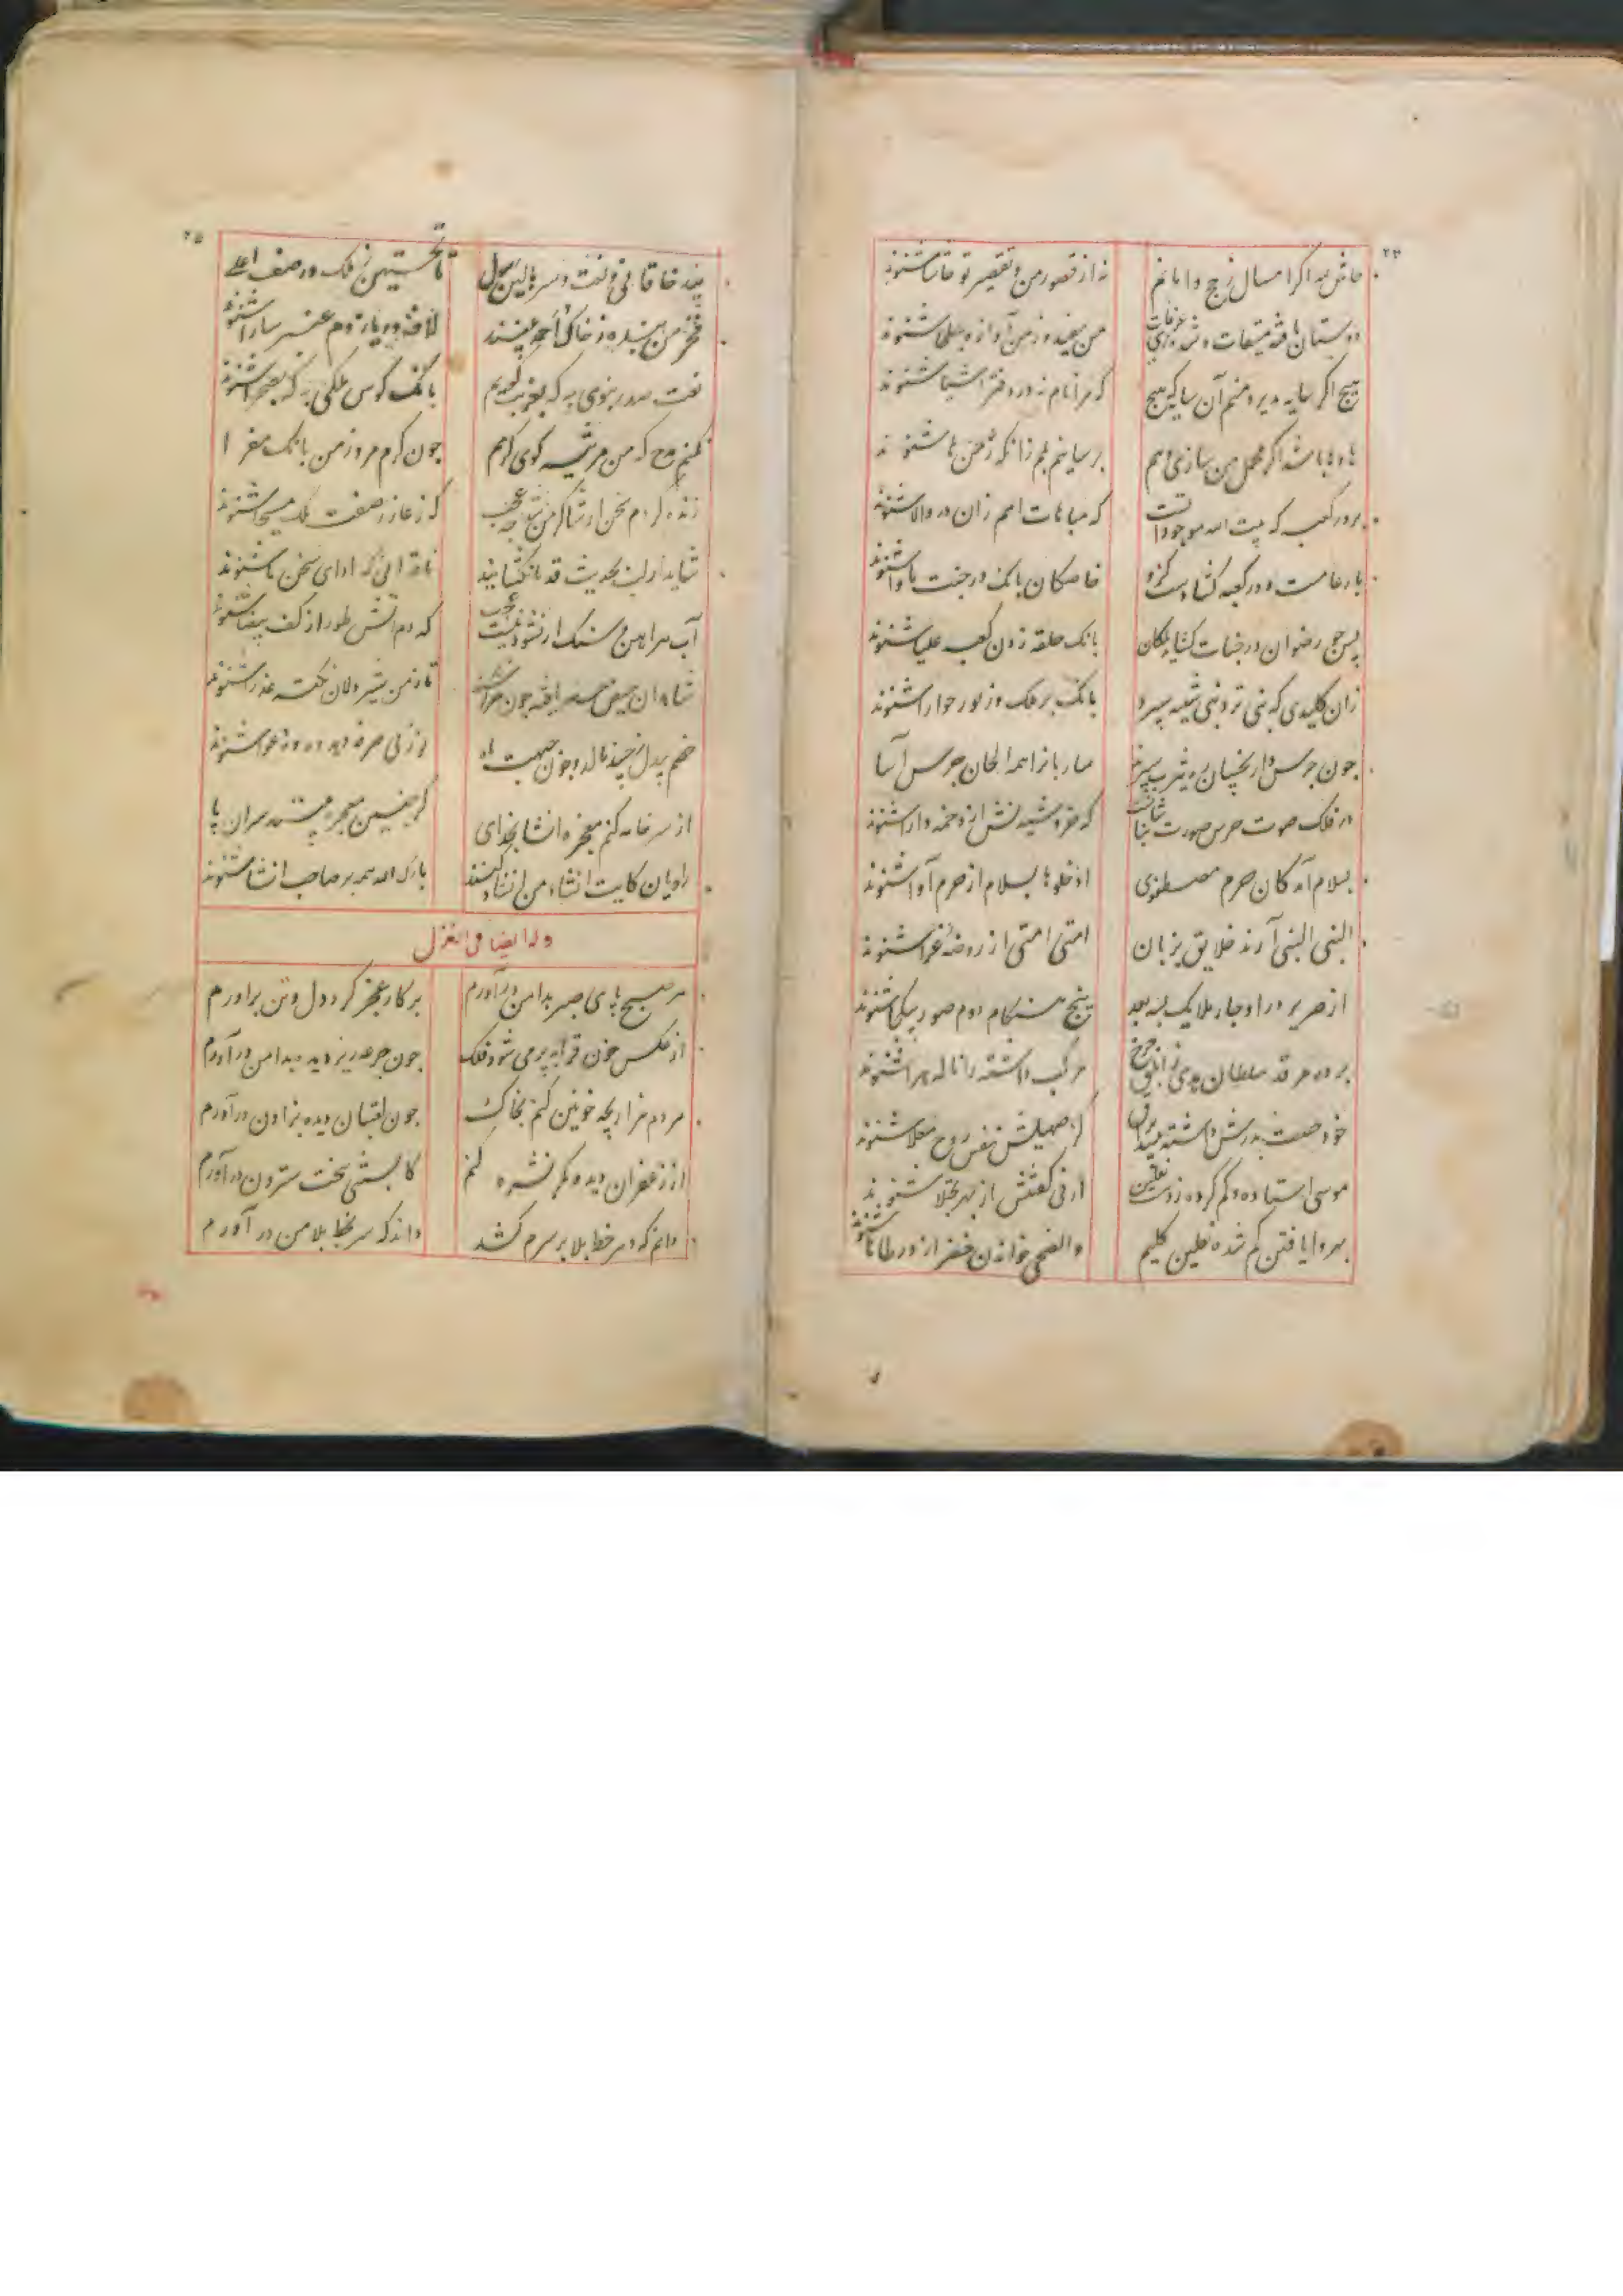 حاش لله اگر امسال ز حج وامانم نه از قصور من و تقصیر تو حاشا شنوند
دوستان یافته میقات و شده زی عرفات من بفید و ز من آوازه ببطحا شنوند
هیچ اگر سایه پذیرد منم آن سایه هیچ که مرا نام نه در دفتر اشیا شنوند
برسانم بلم زانکه ز من ها شنوند
بر در کعبه که بیت الله موجوداتست که مباهات امم زان در والا شنوند
بار عامست و در کعبه گشادست کزو خاصگان بانک در جنت ماوا شنوند
پس چو رضوان در جنات گشاید ملکان بانک حلقه زدن کعبه علیا شنوند
زان کلیدی که نبی نزد بنی شیبه سپرد بانک بر ملک و زیور حورا شنوند
چون جرس دار نجیبان ره یثرب سپرند ساربانرا همه الحان جرس آسا شنوند
در فلک صوت جرس صورت که خروشیدنش از دخمه دارا شنوند
بسلام آمدگان حرم مصطفوی ادخلوها بسلام از حرم آوا شنوند
النبی النبی آرند خلایق بزبان امتی امتی از روضه غرا شنوند
از صریر در او چار ملایک بسه بعد پنج هنگام دوم صور بیکجا شنوند
مرکب داشته را ناله هرا شنوند
کز صهیلش نفس روح معلا شنوند
موسی استاده و گم کرده ز دهشت نعلین ارنی گفتنش از بهر تجلا شنوند
بهر وایافتن گم شده نعلین کلیم والضحی خواندن خضر از در طاها شنوند
بیند خاقانی و نعت و سر بالین رسول تا تحسینهن ز فلک در صف اعلی
فخر من بنده ز خاک در احمد بینند لاف دریا ز دم عنبر سارا شنوند
نعت صدر نبوی به که بغربت گویم بانک کوس ملکی به که بصحرا شنوند
نکنم مدح که من مرثیه گوی کرمم چون کرم مرد ز من بانک معزا
زنده کردم سخن ار شاکر من شد چه عجب که ز عازر صفت ملک مسیحا شنوند
شاید ار لب بحدیث قدما نگشایند ناقدانی که ادای سخن ما شنوند
آب هر آهن و سنک ار نشود نیست عجب که دم آتش طور از کف بیضا شنوند
تا ز من شیر دلان نکته عذرا شنوند
خصم بیدل نچخد ناله و چون جبهت ماه
از سر خامه کنم معجزه انشا بخدای گر چنین معجزه بینند سران یا شنوند
راویان کایت انشاء من انشاد کنند بارک الله همه بر صاحب انشا شنوند
وله ایضا فی الغزل
هر صبح پای صبر بدامن درآورم پرکار عجز گرد دل و تن برآورم
از عکس خون قرابه پر می شود فلک چون جرعه ریز دیده بدامن درآورم
هر دم هزار بچه خونین کنم بخاک چون لعبتان دیده بزادن درآورم
از زعفران دیده مگر نشره کنم کابستنی ببخت سترون درآورم
دانم که دهر خط بلا بر سرم کشد داند که سر بخط بلا من درآورم